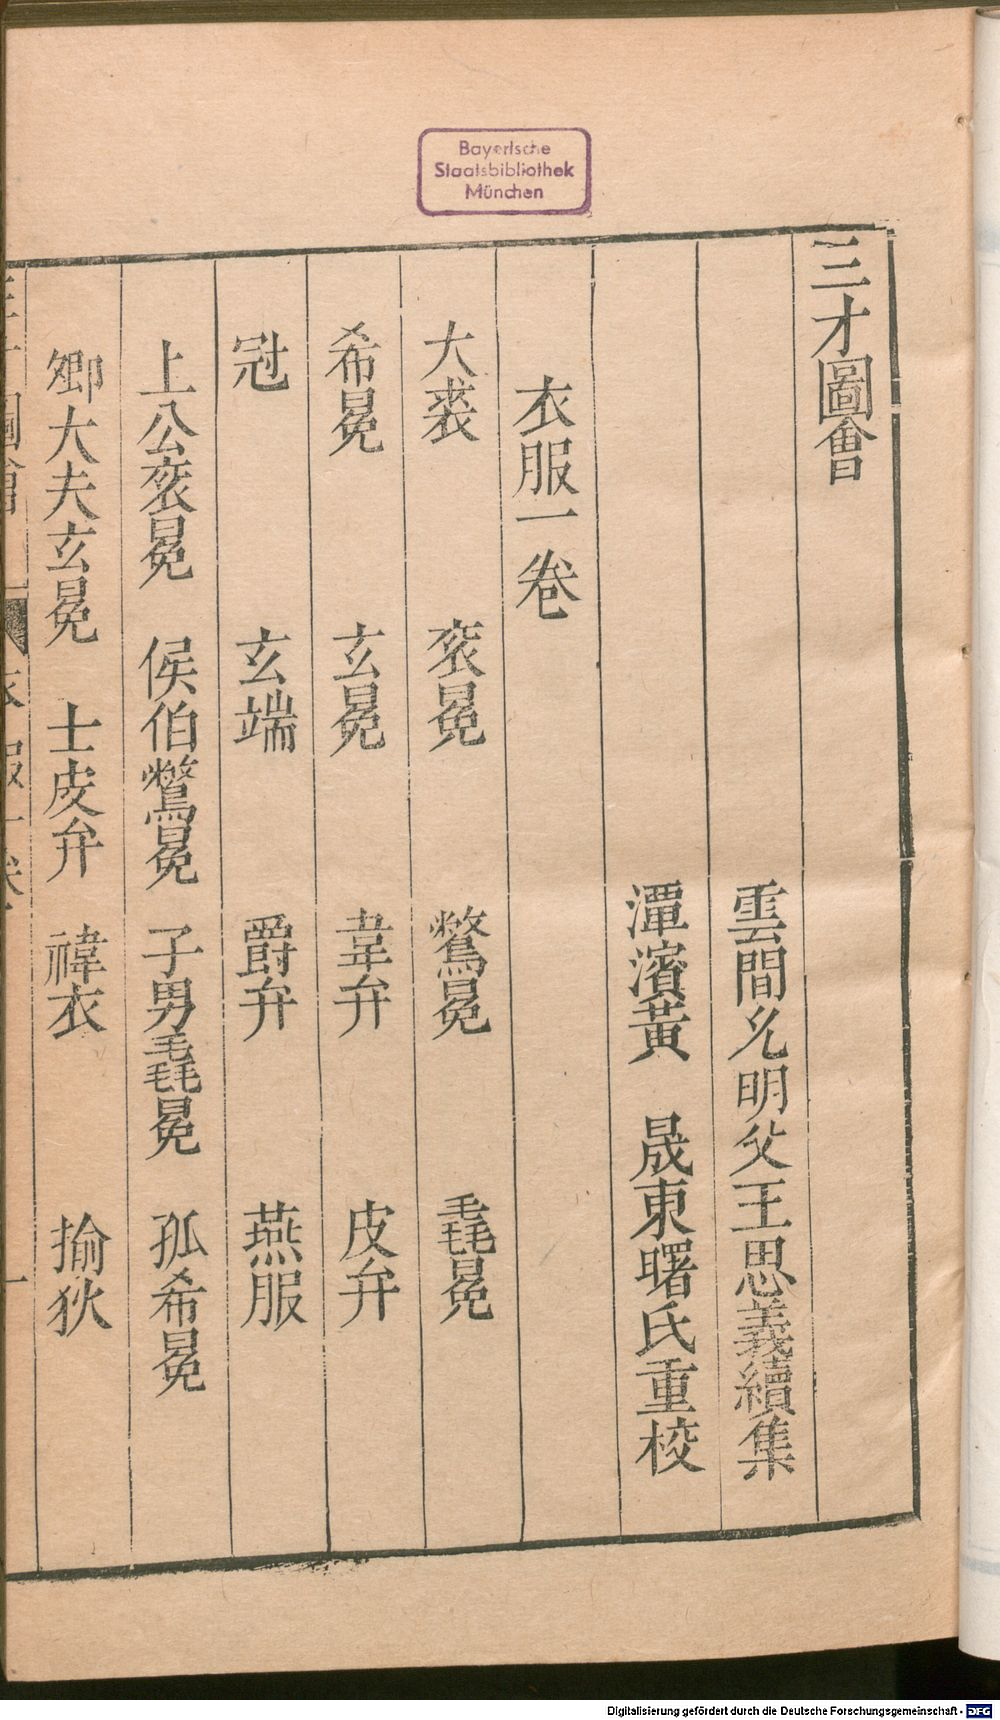 Bayerische
Staatsbibliothek
München
三才圖會
雲間允明父王思義續集
潭濱黃 晟東曙氏重校
衣服一卷
大裘 袞冕 鷩冕 毳冕
希冕 玄冕 韋弁 皮弁
冠 玄端 爵弁 燕服
上公袞冕 侯伯鷩冕 子男毳冕 孤希冕
卿大夫玄冕 士皮弁 褘衣 揄狄
Digitalisierung gefördert durch die Deutsche Forschungsgemeinschaft - DFG